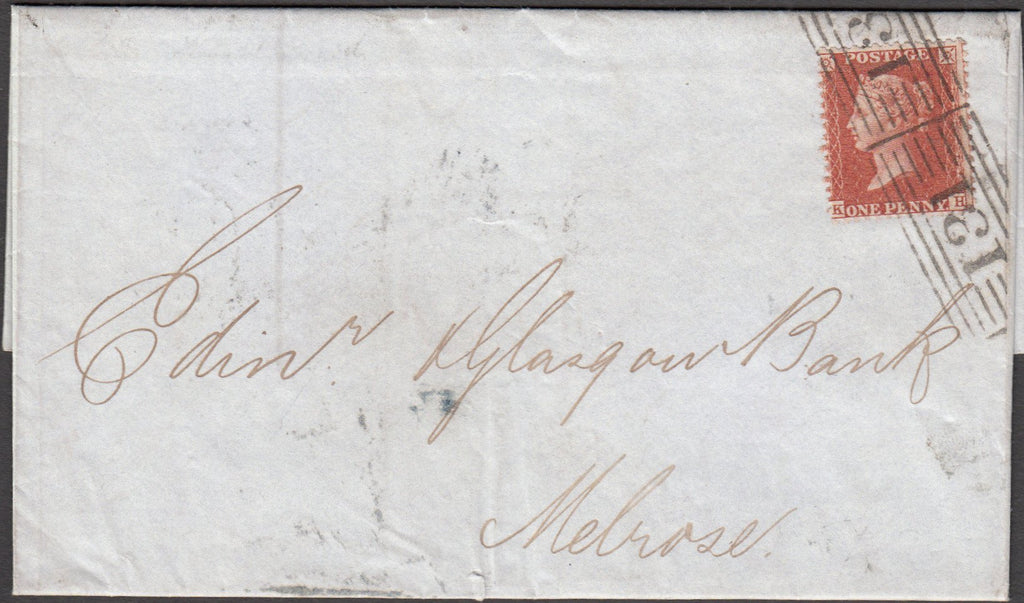 131
POSTAGE
K ONE PENNY H
131
Edinr & Glasgow Bank
Melrose.